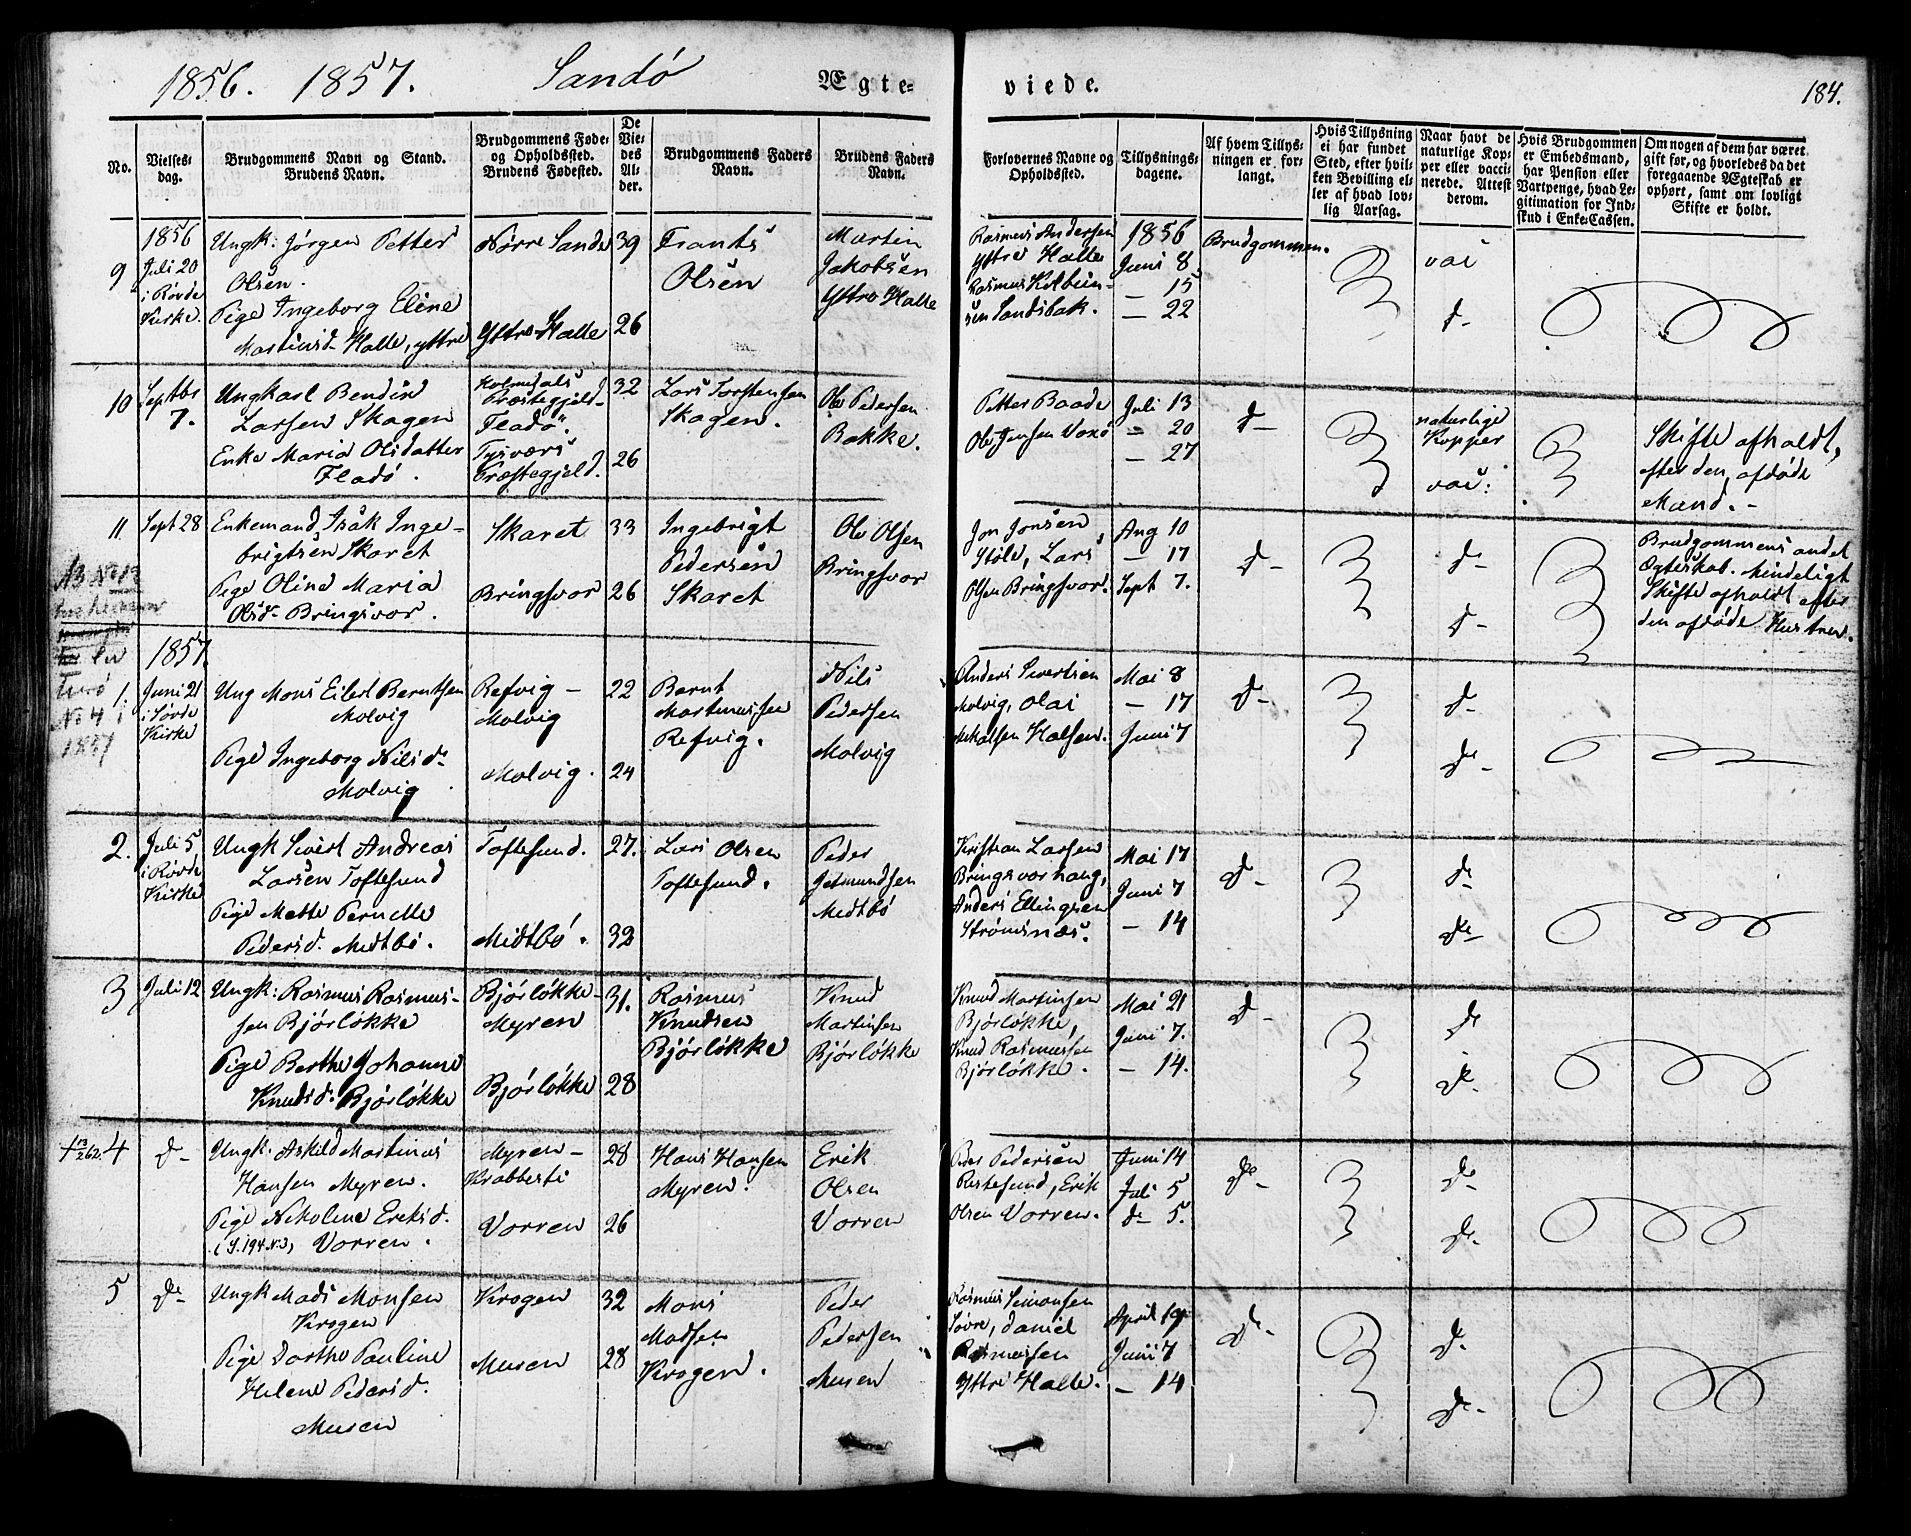 1856. 1857. Sandö Ægte=
viede. 184.
No.
Vielses-
dag.
Brudgommens Navn og Stand.
Brudens Navn.
Brudgommens Føde-
og Opholdssted.
Brudens Fødested.
De
Vie-
des
Al-
der.
Brudgommens Faders
Navn.
Brudens Faders
Navn.
Forlovernes Navne og
Opholdssted.
Tillysnings-
dagene.
Af hvem Tillys-
ningen er for-
langt.
Hvis Tillysning
ei har fundet
Sted, efter hvil-
ken Bevilling el-
ler af hvad lov-
lig Aarsag.
Naar havt de
naturlige Kop-
per eller vacci-
nerede. Attest
derom.
Hvis Brudgommen
er Embedsmand,
har Pension eller
Vartpenge, hvad Le-
gitimation for Ind-
skud i Enke-Cassen.
Om nogen af dem har været
gift før, og hvorledes da det
foregaaende Ægteskab er
ophørt, samt om lovligt
Skifte er holdt.
9
1856
Juli 20
i Rövde
Kirke.
Ungk: Jörgen Petter
Olsen.
Pige Ingeborg Eline
Martinsd. Halle, yttre
Nörre Sande
Yttre Halle
39
26
Frants
Olsen
Martin
Jakobsen
Yttre Halle
Rasmus Andersen
Yttre Halle
Rasmus
Sandsbak.
1856
Juni 8
— 15
— 22
Brudgommen.
vac
d-
10
Septbr
7.
Ungkarl Bendix
Larsen Skagen
Enke Maria Olsdatter
Fladö.
Præstegjeld-
Fladö.
Tysværs
Præstegjeld.
32
26
Lars Torstensen
Skagen.
Ole Pedersen
Bakke.
Petter Baade
Ole Jensen Voxö
Juli 13
— 20
— 27
d-
naturlige
Kopper
vac:
Skifte afholdt,
efter den afdöde
Mand. -
11
Sept 28
Enkemand Isak Inge-
brigtsen Skaret
Pige Oline Maria
Olsd- Bringsvor.
Skaret
Bringsvor
33
26
Ingebrigt
Pedersen
Skaret
Ole Olsen
Bringsvor
Jon Jonsen
Stöle, Lars
Olsen Bringsvor.
Aug 10
— 17
Sept 7.
d-
d-
d-
Brudgommens andet
Ægteskab. Mindeligt
Skifte afholdt efter
den afdöde Hustrue.
No 4 i
1857
1857
1.
Juni 21
i Sövde
Kirke
Ung Mons Eilert Berntsen
Molvig
Pige Ingeborg Nilsd-
Molvig
Refvig -
Molvig
Molvig.
22
24
Bernt
Martinussen
Refvig.
Nils
Pedersen
Molvig
Anders Sivertsen
Molvig, Olai
Halsen.
Mai 8
— 17
Juni 7
d-
d-
d-
2.
Juli 5
i Rövde
Kirke
Ungk Sivert Andreas
Larsen Toftesund
Pige Mette Pernelle
Pedersd. Medtbö.
Toftesund.
Medtbö.
27.
32
Lars Olsen
Toftesund.
Peder
Getmundsen
Medtbö
Kristian Larsen
Bringsvorhaug,
Anders Ellingsen
Strömsnæs.
Mai 17
Juni 7
— 14
d-
d-
d-
3
Juli 12
Ungk: Rasmus Rasmus-
sen Björlökke
Pige Berthe Johanne
Knudsd. Björlökke
Björlökke-
Myren
Björlökke
31.
28
Rasmus
Knudsen
Björlökke
Knud
Martinsen
Björlökke
Knud Martinsen
Björlökke,
Knud Rasmussen
Björlökke.
Mai 21
Juni 7.
— 14.
d-
d-
d-
4
d-
Ungk. Askild Martinus
Hansen Myren.
Pige Nikoline Eriksd.
(S. 194 N. 3) Vorren.
Myren-
Krabbesti
Vorren
28
26
Hans Hansen
Myren.
Erik
Olsen
Vorren
Peder Pedersen
Restesund, Erik
Olsen Vorren.
Juni 14
Juli 5
d- 5.
d-
d-
d-
5
d-
Ungk Mads Monsen
Krogen
Pige Dorthe Pauline
Helene Pedersd.
Musen
Krogen
Musen
32
28
Mons
Madsen
Krogen.
Peder
Pedersen
Musen
Rasmus Simonsen
Sövre, Daniel
Rasmussen
Yttre Halle.
April 19
Juni 7
— 14
d-
d-
d-